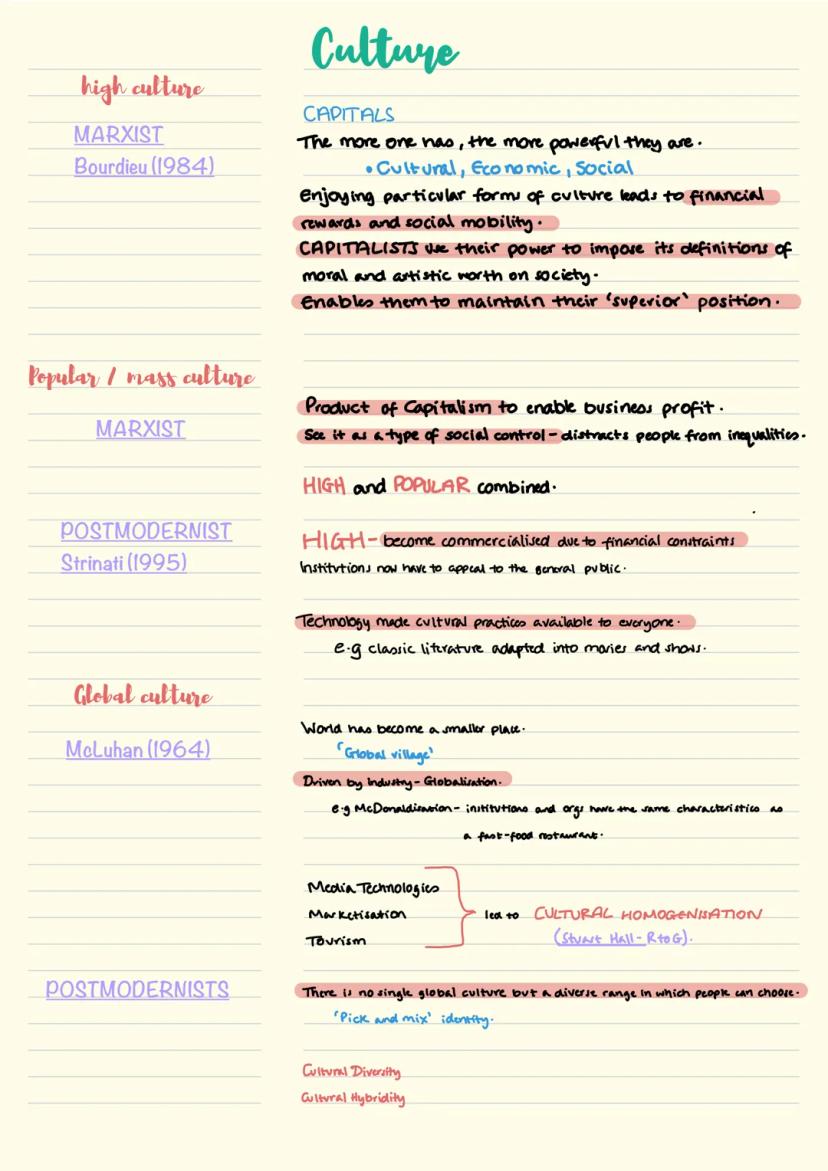 Culture
high culture
CAPITALS
MARXIST
The more one has, the more powerful they are.
Bourdieu (1984)
• Cultural, Economic, Social
Enjoying particular forms of culture leads to financial
rewards and social mobility.
CAPITALISTS use their power to impose its definitions of
moral and artistic worth on society.
Enables them to maintain their 'superior' position.
Popular / mass culture
Product of Capitalism to enable business profit.
MARXIST
See it as a type of social control - distracts people from inequalities.
HIGH and POPULAR combined.
POSTMODERNIST
HIGH - become commercialised due to financial constraints
Strinati (1995)
Institutions now have to appeal to the general public.
Technology made cultural practices available to everyone.
e.g classic literature adapted into movies and shows.
Global culture
World has become a smaller place.
McLuhan (1964)
'Global village'
Driven by Industry - Globalisation.
e.g McDonaldisation - institutions and orgs have the same characteristics as
a fast-food restaurant.
Media Technologies
Marketisation
led to CULTURAL HOMOGENISATION
Tourism
(Stuart Hall - R to G).
POSTMODERNISTS
There is no single global culture but a diverse range in which people can choose.
'Pick and mix' identity.
Cultural Diversity
Cultural Hybridity